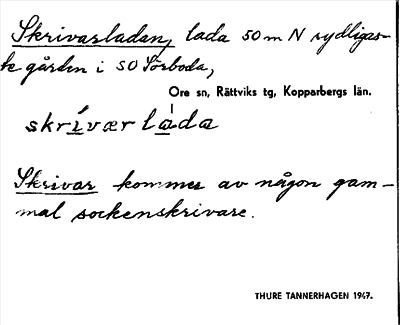 Skrivarladan, lada 50 m N sydligas-
te gården i SO Sörboda,
Ore sn, Rättviks tg, Kopparbergs län.
skrívær láda
Skrivar kommer av någon gam-
mal sockenskrivare.
THURE TANNERHAGEN 1967.